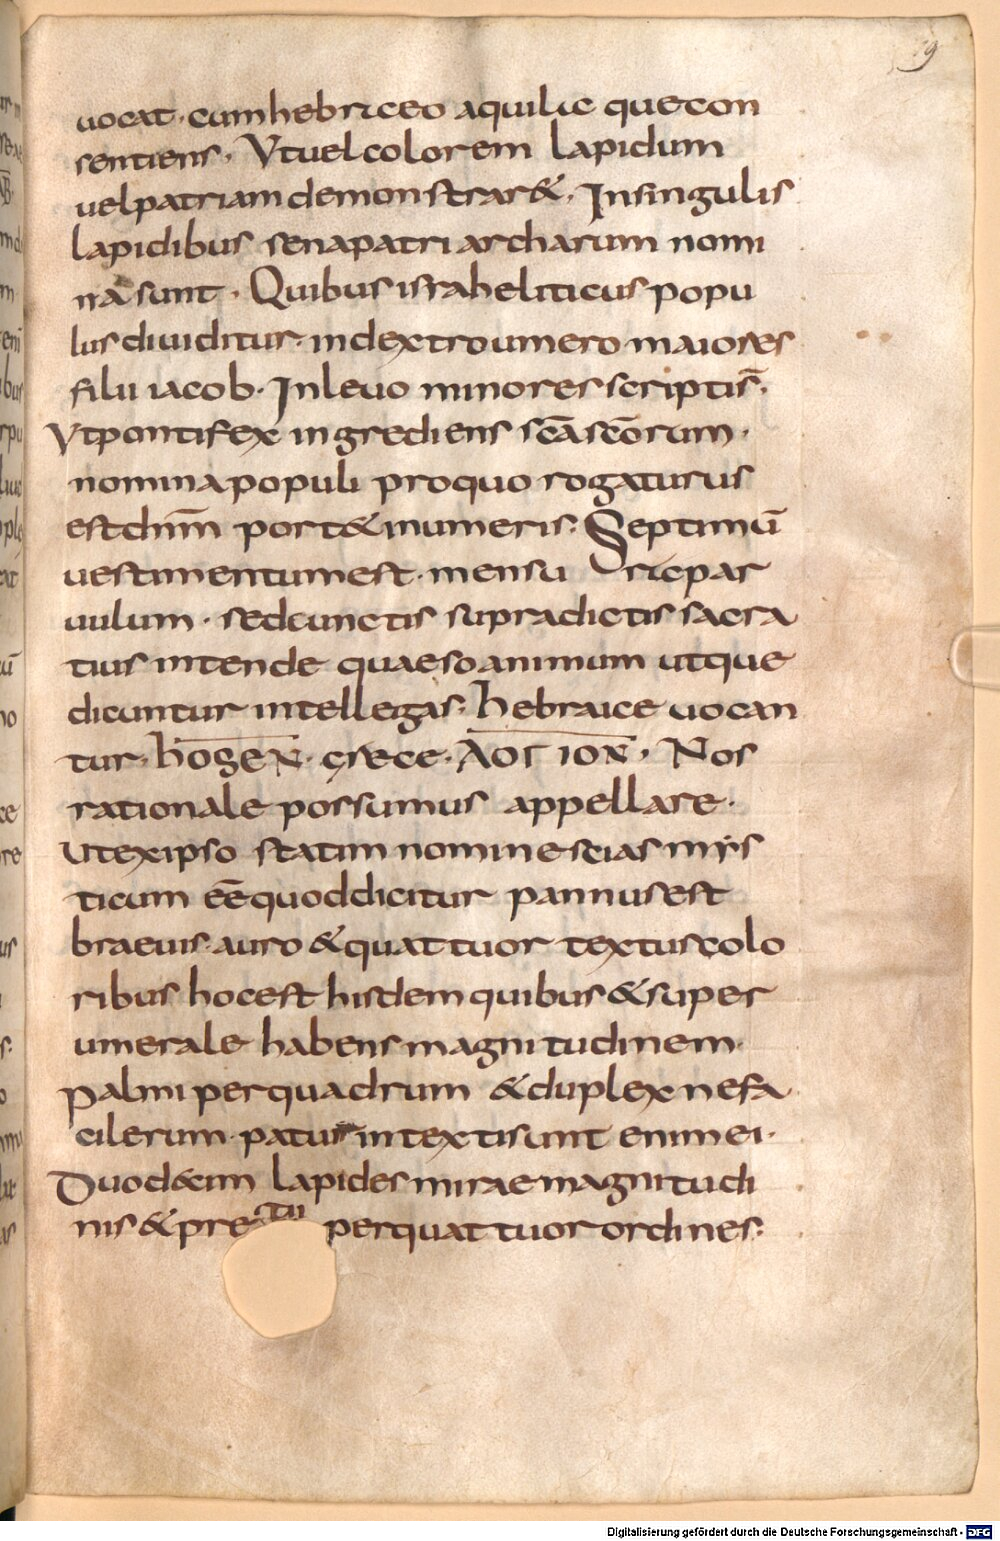 19
uocat · cum hebriceo aquilic que con
sentiens · Vt uel colorem lapidum
uel patriam demonstrar& · In singulis
lapidibus sena patriarcharum nomi
na sunt · Quibus israheliticus popu
lus diuiditur · in dextro umero maiores
filii iacob · In leuo minores scripti s̄ ·
Vt pontifex ingrediens sc̄a sc̄orum ·
nomina populi pro quo rogaturus
est dn̄m port& in umeris · Septimū
uestimentum est · mensu ricpar
uulum · sed cunctis supradictis sacra
tius intende quaeso animum ut que
dicuntur intellegas · hebraice uocan
tur · hosen · grece · ΛΟΓΙΟΝ · Nos
rationale possumus appellare ·
Ut ex ipso statim nomine scias mys
ticum eē quod dicitur pannus est
braeuis · auro & quattuor textus colo
ribus hoc est hisdem quibus & super
umerale habens magnitudinem ·
palmi per quadrum & duplex ne fa
cile rum patur intexti sunt enim ei ·
Duodecim lapides mirae magnitudi
nis & pre ctii per quattuor ordines ·
Digitalisierung gefördert durch die Deutsche Forschungsgemeinschaft - DFG